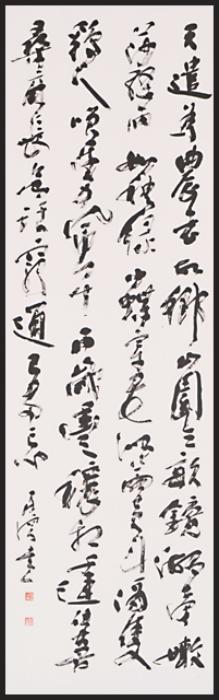 天遣為農老故鄉山園三畝鏡湖傍嫩
莎經雨如秧綠小蝶穿花似繭黃斗酒隻
雞人笑樂十風五雨歲豐穰相逢但喜
桑麻長欲話窮通已兩忘